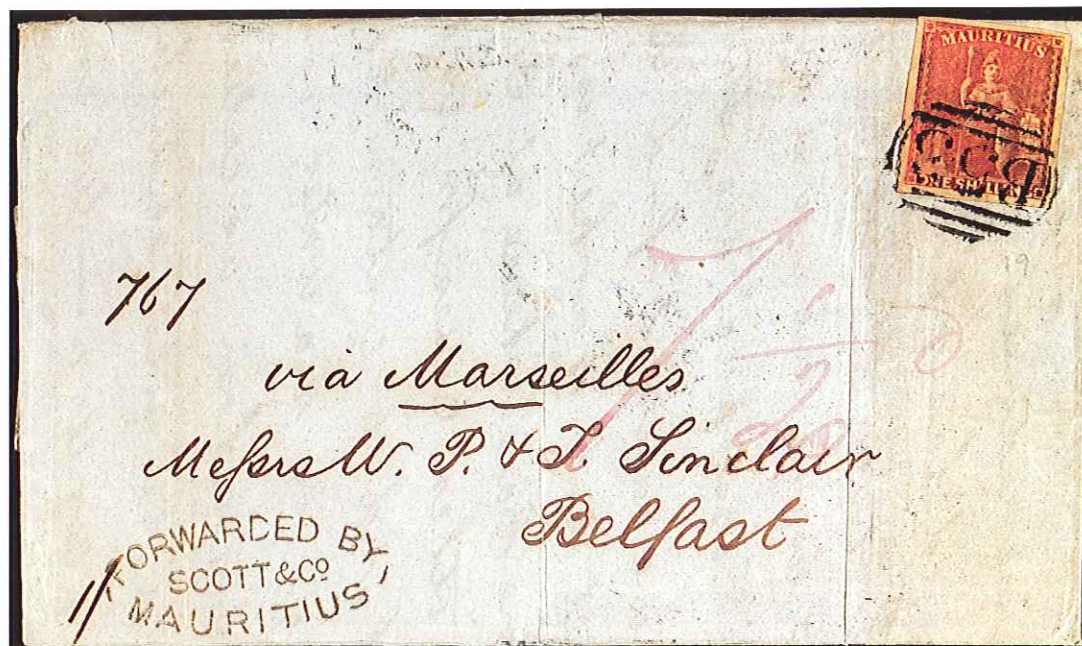 MAURITIUS
ONE SHILLING
B53
19
767
via Marseilles
Messrs W. P. & T. Sinclair
Belfast
FORWARDED BY
SCOTT & Co
MAURITIUS
1/